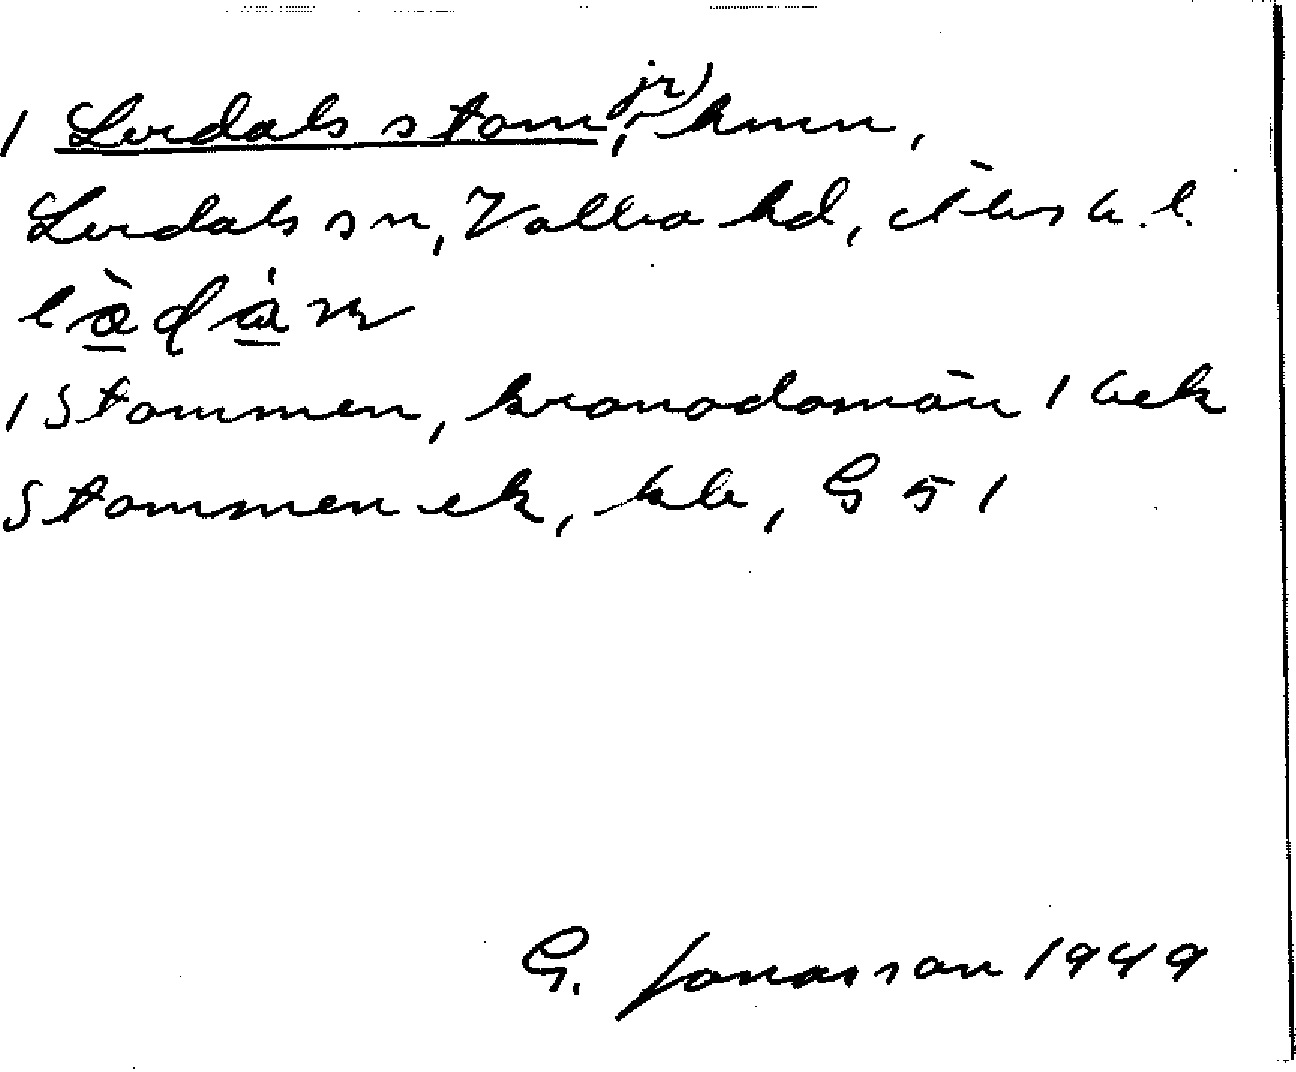 1 Lerdals stom, jr) hmn,
Lerdals sn, Valbo hd, Älvsb. l.
1 Stommen, kronodomän 1 bek
Stommen ek, kb, G 5 1
G. Jonasson 1949